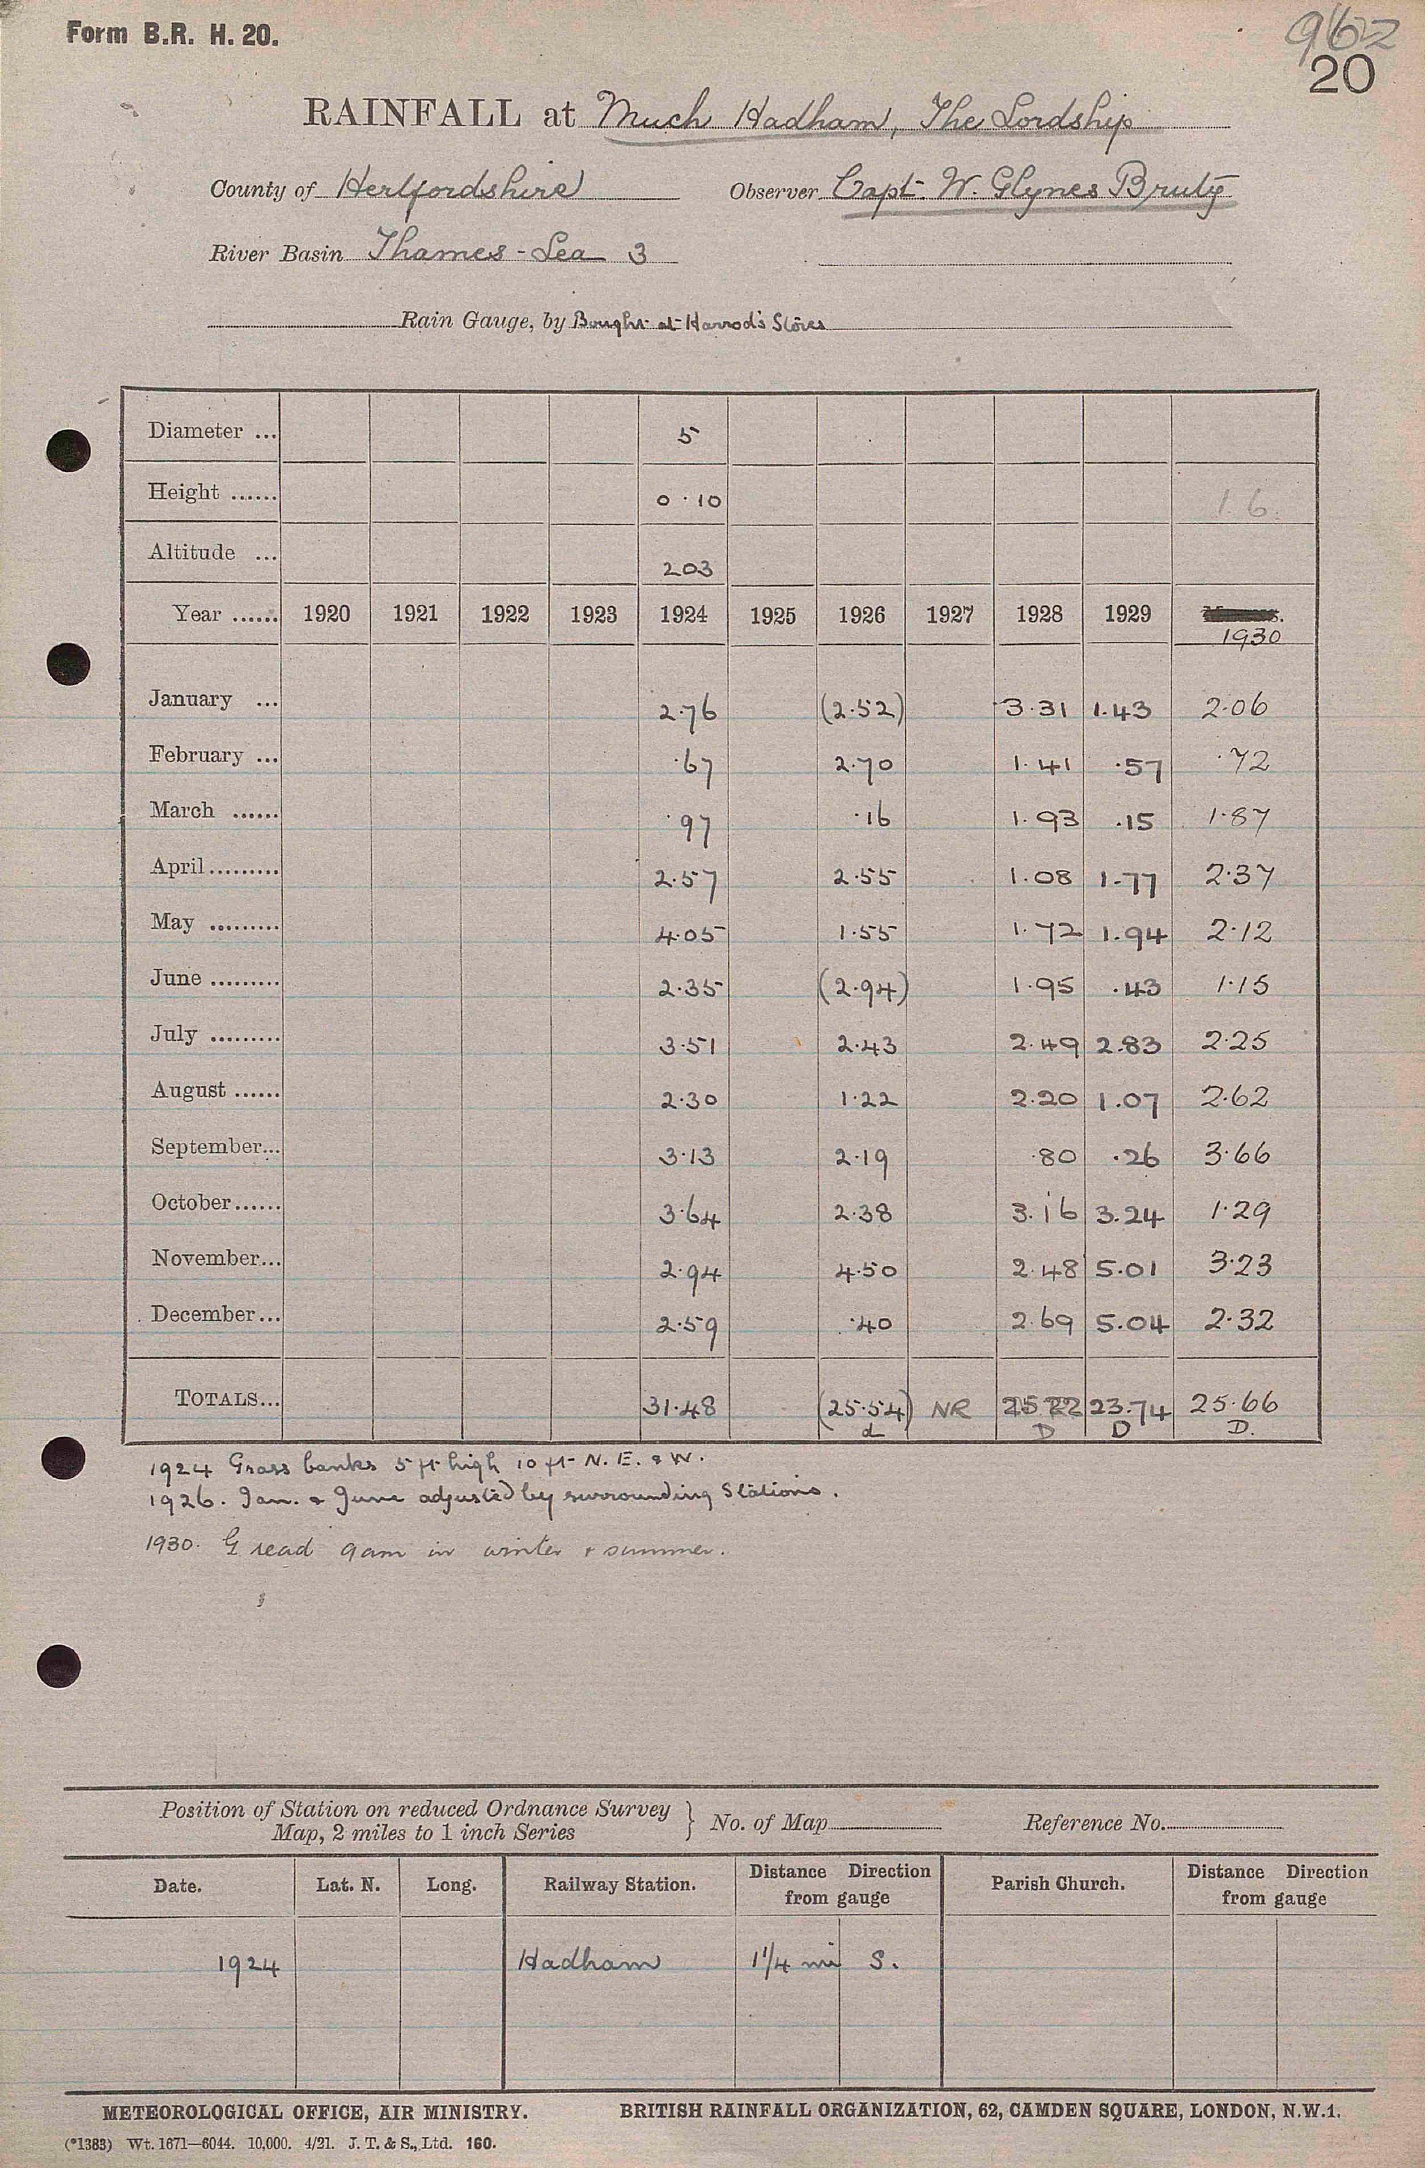 Form B.R. H. 20.
962
20
RAINFALL at Much Hadham, The Lordship
County of Hertfordshire Observer Capt. W. Glynes Bruty
River Basin Thames - Lea 3
Rain Gauge, by Bought at Harrod's Stores
Diameter ... 5
Height ...... 0·10 1.6.
Altitude ... 203
Year ...... 1920 1921 1922 1923 1924 1925 1926 1927 1928 1929
1930
January ... 2·76 (2·52) 3·31 1.43 2·06
February ... ·67 2·70 1·41 ·57 ·72
March ...... ·97 ·16 1·93 ·15 1·87
April ......... 2·57 2·55 1·08 1·77 2·37
May ......... 4·05 1·55 1·72 1.94 2·12
June ......... 2·35 (2·94) 1·95 ·43 1·15
July ......... 3·51 2·43 2·49 2.83 2·25
August ...... 2·30 1·22 2·20 1.07 2·62
September... 3·13 2·19 ·80 ·26 3·66
October ...... 3·64 2·38 3·16 3.24 1·29
November... 2·94 4·50 2·48 5.01 3·23
December... 2·59 ·40 2·69 5.04 2·32
TOTALS... 31·48 (25·54) NR 25 22 23.74 25·66
d D D D.
1924 Grass banks 5 ft high 10 ft N. E. & W.
1926. Jan. & June adjusted by surrounding Stations.
1930. G read 9am in winter & summer.
Position of Station on reduced Ordnance Survey
Map, 2 miles to 1 inch Series } No. of Map Reference No.
Date. Lat. N. Long. Railway Station. Distance Direction from gauge Parish Church. Distance Direction from gauge
1924 Hadham 1 1/4 mi S.
METEOROLOGICAL OFFICE, AIR MINISTRY. BRITISH RAINFALL ORGANIZATION, 62, CAMDEN SQUARE, LONDON, N.W.1.
(*1383) Wt. 1671—6044. 10,000. 4/21. J. T. & S., Ltd. 160.